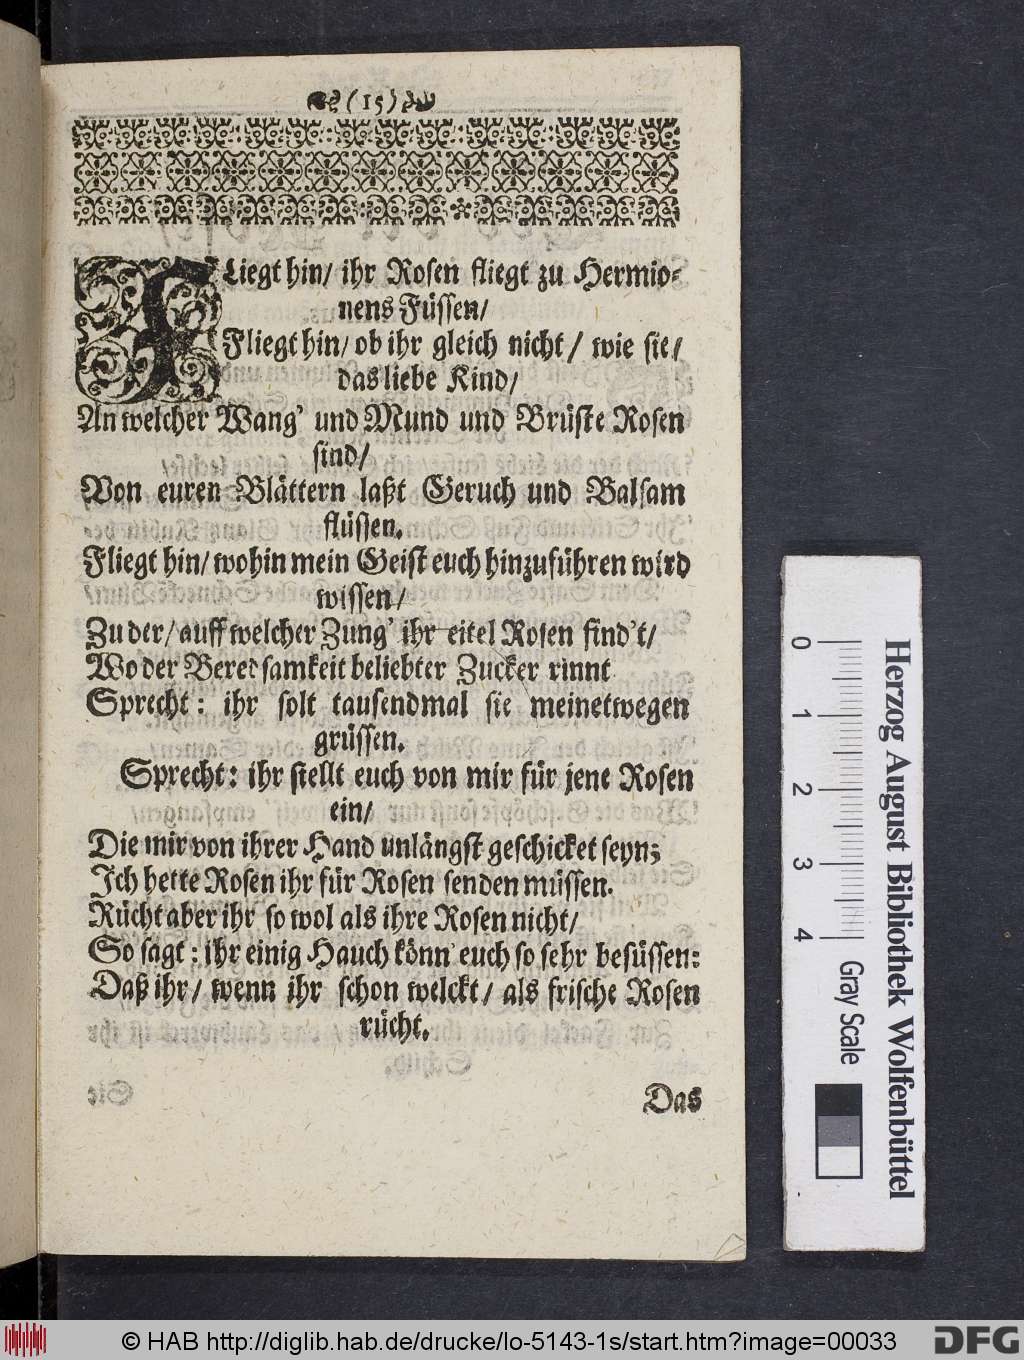 (15)
FLiegt hin/ ihr Rosen fliegt zu Hermio-
nens Füssen/
Fliegt hin/ ob ihr gleich nicht/ wie sie/
das liebe Kind/
An welcher Wang' und Mund und Brüste Rosen
sind/
Von euren Blättern laßt Geruch und Balsam
flüssen.
Fliegt hin/ wohin mein Geist euch hinzuführen wird
wissen/
Zu der/ auff welcher Zung' ihr eitel Rosen find't/
Wo der Beredsamkeit beliebter Zucker rinnt
Sprecht: ihr solt tausendmal sie meinetwegen
grüssen.
Sprecht: ihr stellt euch von mir für jene Rosen
ein/
Die mir von ihrer Hand unlängst geschicket seyn;
Ich hette Rosen ihr für Rosen senden müssen.
Rücht aber ihr so wol als ihre Rosen nicht/
So sagt: ihr einig Hauch könn' euch so sehr besüssen:
Daß ihr/ wenn ihr schon welckt/ als frische Rosen
rücht.
Das
0 1 2 3 4
Gray Scale
Herzog August Bibliothek Wolfenbüttel
© HAB http://diglib.hab.de/drucke/lo-5143-1s/start.htm?image=00033
DFG